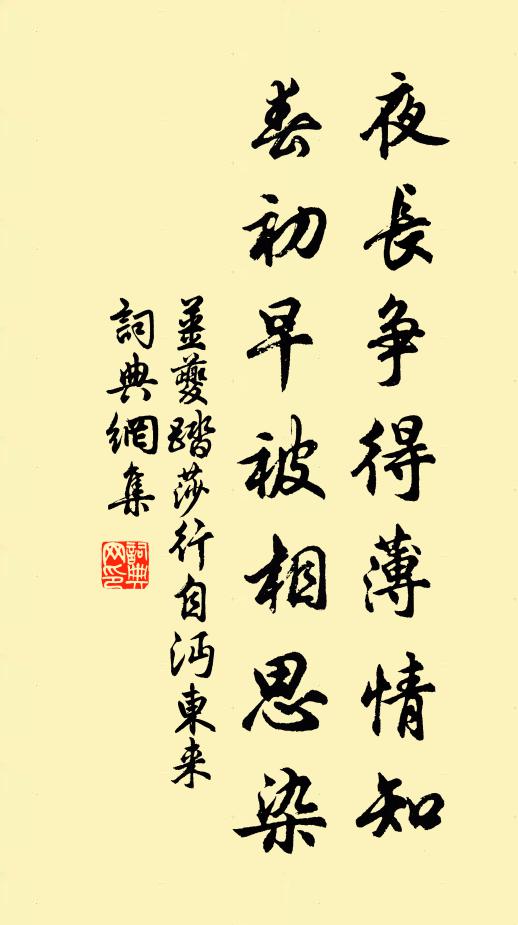 夜長争得薄情知
春初早被相思染
姜夔踏莎行自沔東来
詞典網集
詞典
网印